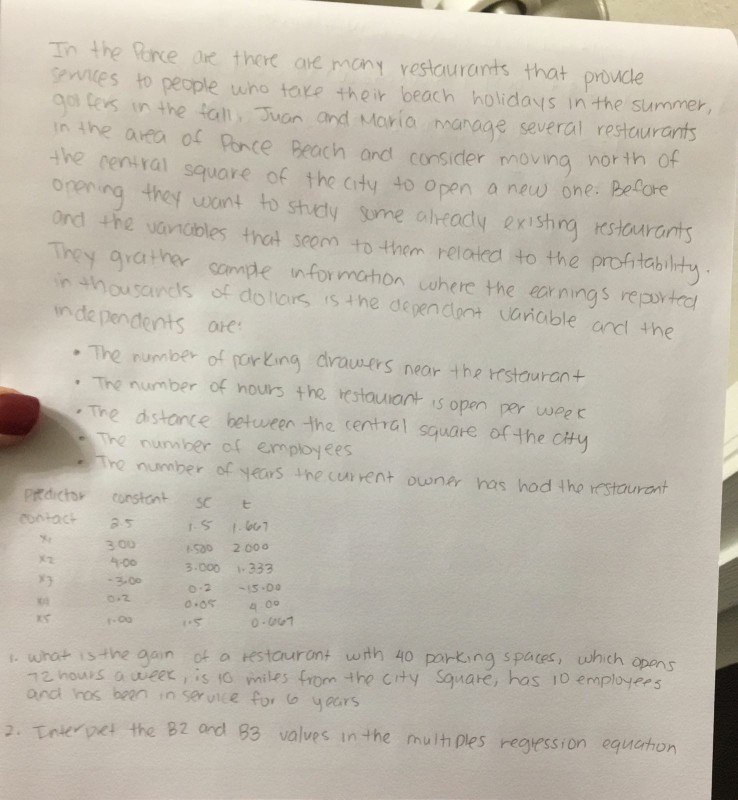 In the Ponce are there are many restaurants that provide
services to people who take their beach holidays in the summer,
golfers in the fall. Juan and Maria manage several restaurants
in the area of Ponce Beach and consider moving north of
the central square of the city to open a new one. Before
opening they want to study some already existing restaurants
and the variables that seem to them related to the profitability.
They grather sample information where the earnings reported
in thousands of dollars is the dependent variable and the
independents are:
• The number of parking drawers near the restaurant
• The number of hours the restaurant is open per week
• The distance between the central square of the city
• The number of employees
• The number of years the current owner has had the restaurant
Predictor constant SC t
contact 2.5 1.5 1.667
X1 3.00 1.500 2.000
X2 4.00 3.000 1.333
X3 -3.00 0.2 -15.00
0.2 0.05 4.00
X5 1.00 1.5 0.667
1. What is the gain of a restaurant with 40 parking spaces, which opens
72 hours a week, is 10 miles from the city square, has 10 employees
and has been in service for 6 years
2. Interpret the B2 and B3 values in the multiples regression equation